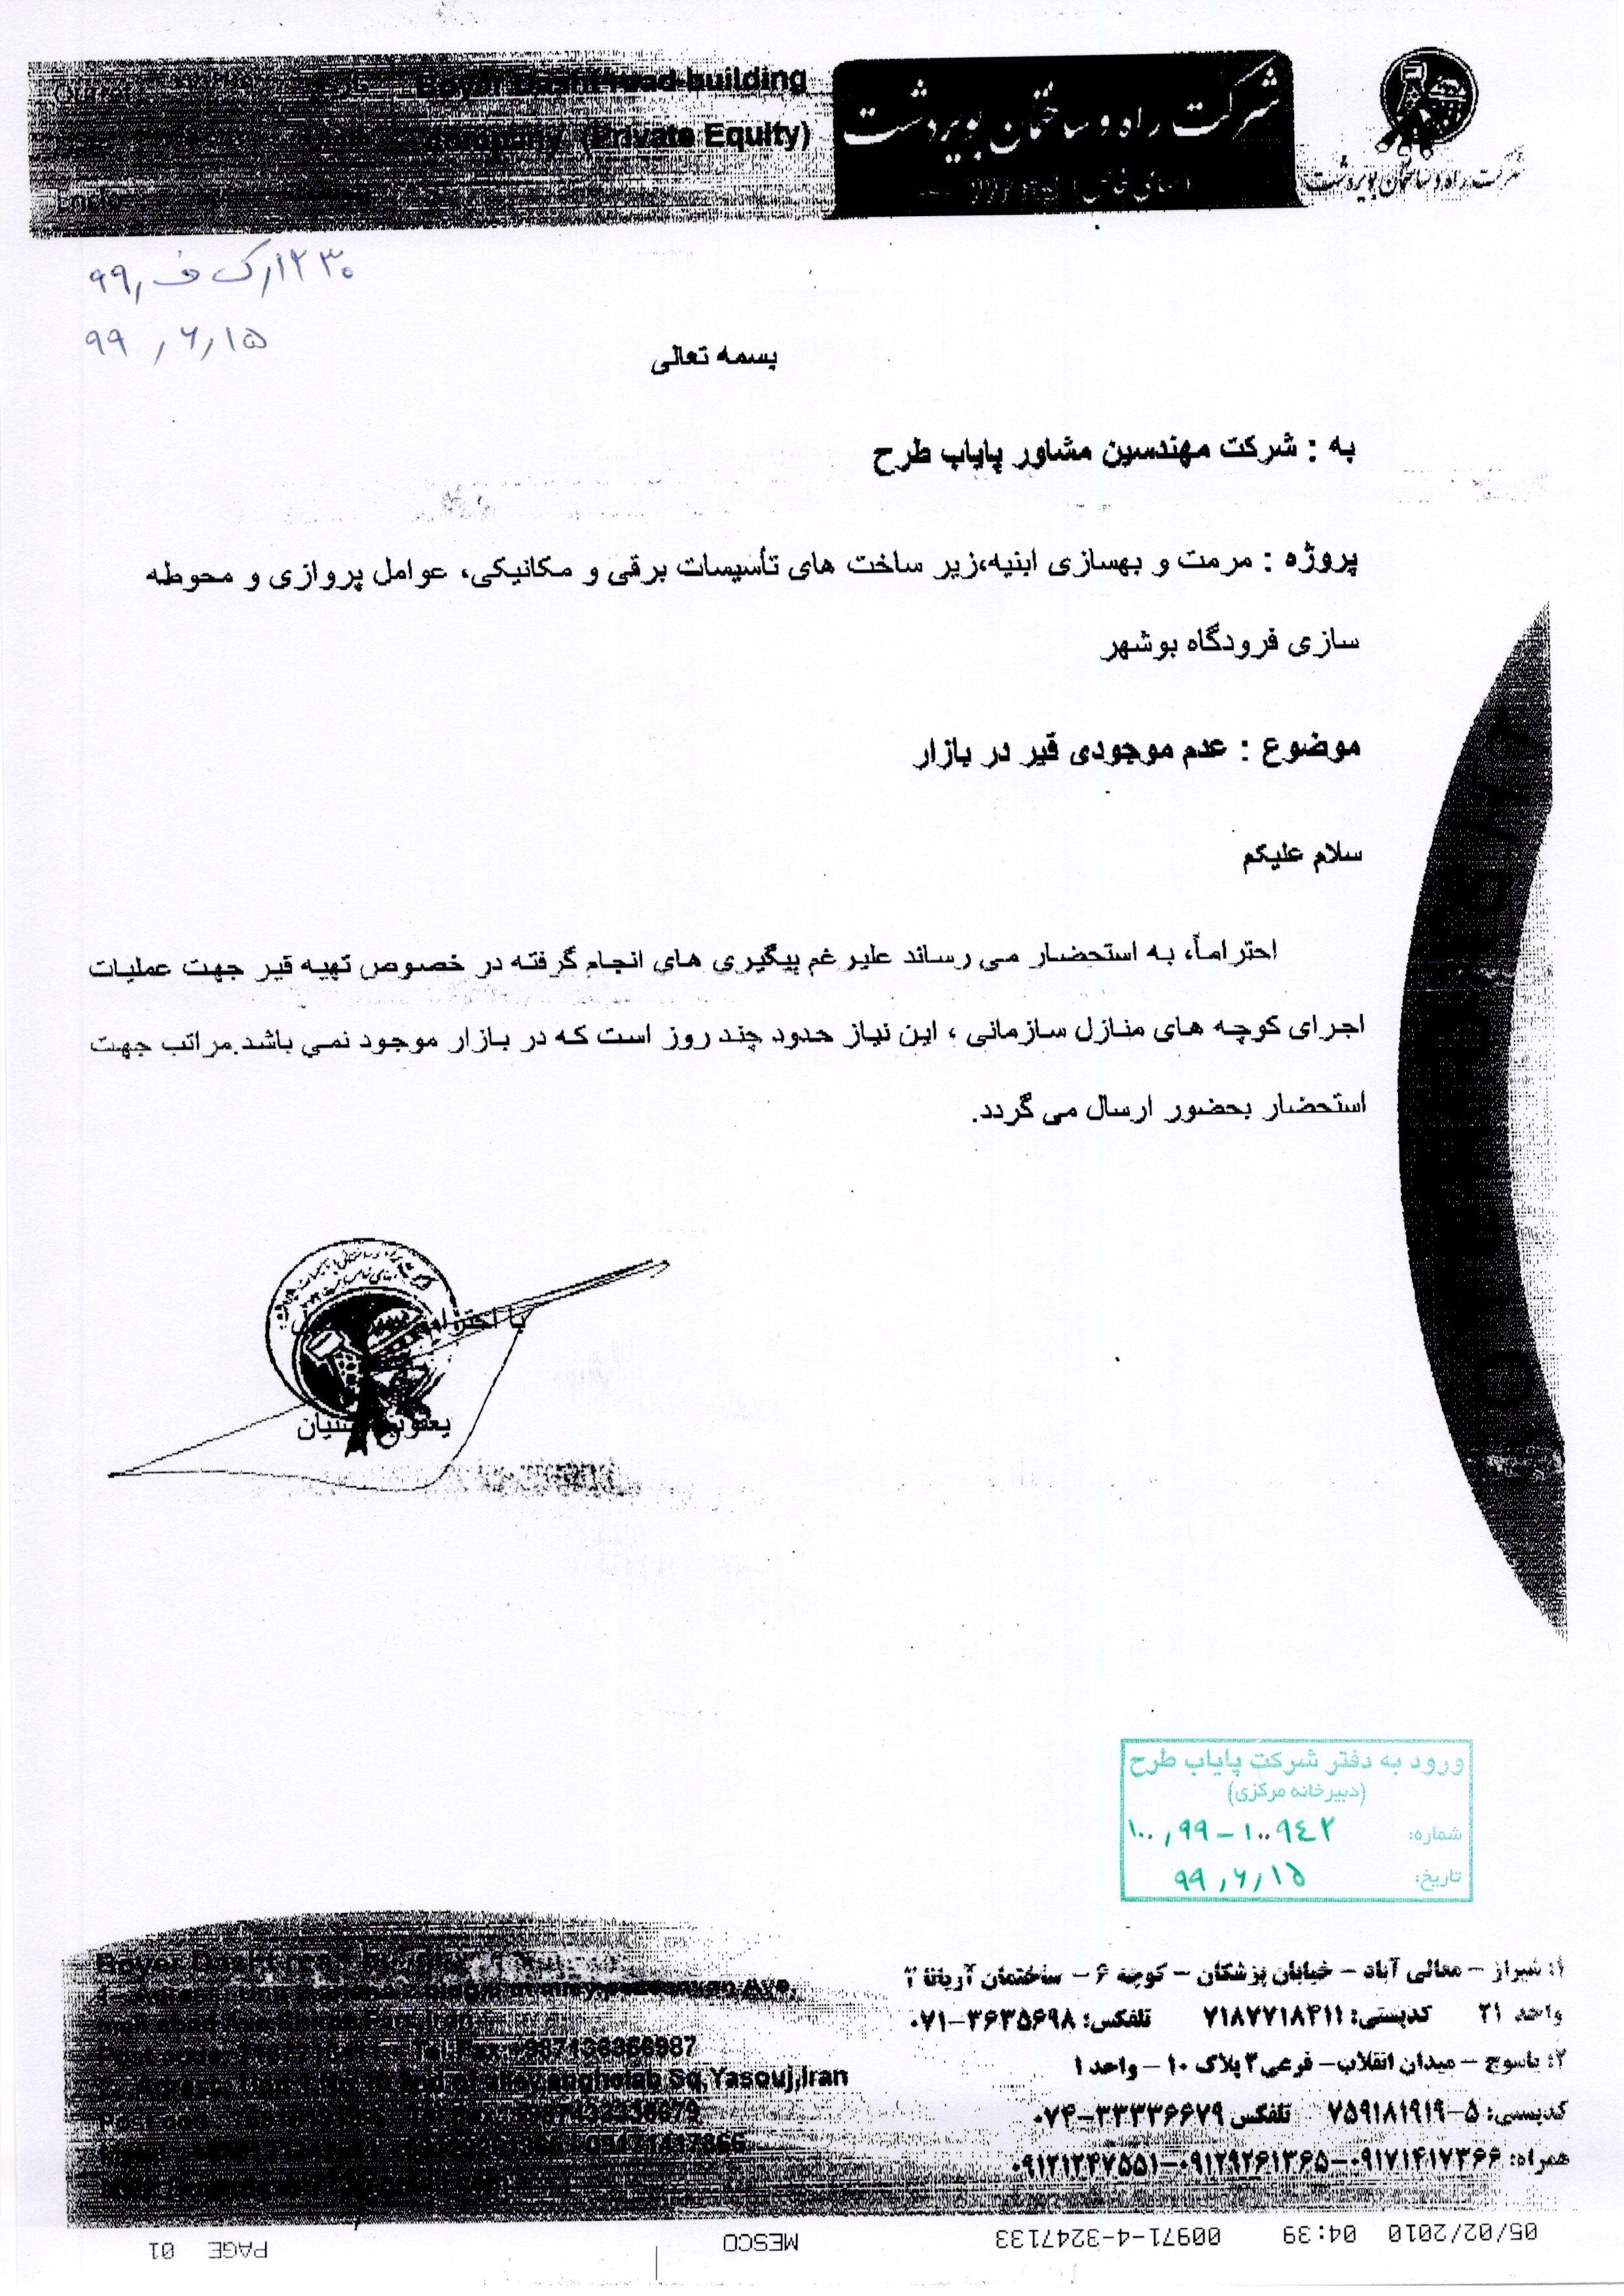 Boyer Dasht road-building
company (Private Equity)
شرکت راه و ساختمان بویردشت
شرکت راه و ساختمان بویردشت
۹۹/۶/۱۵
بسمه تعالی
به : شرکت مهندسین مشاور پایاب طرح
پروژه : مرمت و بهسازی ابنیه،زیر ساخت های تأسیسات برقی و مکانیکی، عوامل پروازی و محوطه
سازی فرودگاه بوشهر
موضوع : عدم موجودی قیر در بازار
سلام علیکم
احتراماً، به استحضار می رساند علیرغم پیگیری های انجام گرفته در خصوص تهیه قیر جهت عملیات
اجرای کوچه های منازل سازمانی ، این نیاز حدود چند روز است که در بازار موجود نمی باشد.مراتب جهت
استحضار بحضور ارسال می گردد.
با احترام
یعقوب
ورود به دفتر شرکت پایاب طرح
(دبیرخانه مرکزی)
شماره: ۱۰۰/۹۹-۱۰۰۹۴۲
تاریخ: ۹۹/۶/۱۵
۱: شیراز – معالی آباد – خیابان پزشکان – کوچه ۶ – ساختمان آریانا ۲
واحد ۲۱ کدپستی: ۷۱۸۷۷۱۸۴۱۱ تلفکس: ۰۷۱-۳۶۳۵۶۹۸
۲: یاسوج – میدان انقلاب– فرعی ۳ پلاک ۱۰ – واحد ۱
کدپستی: ۵-۷۵۹۱۸۱۹۱۹ تلفکس ۰۷۴-۳۳۳۳۶۶۷۹
همراه: ۰۹۱۷۱۴۱۷۳۶۶-۰۹۱۲۹۲۶۱۳۶۵-۰۹۱۲۱۲۴۷۵۵۱
Tel.Fax:+987136356987
Sq,Yasouj,Iran
05/02/2010 04:39 00971-4-3247133 MESCO PAGE 01